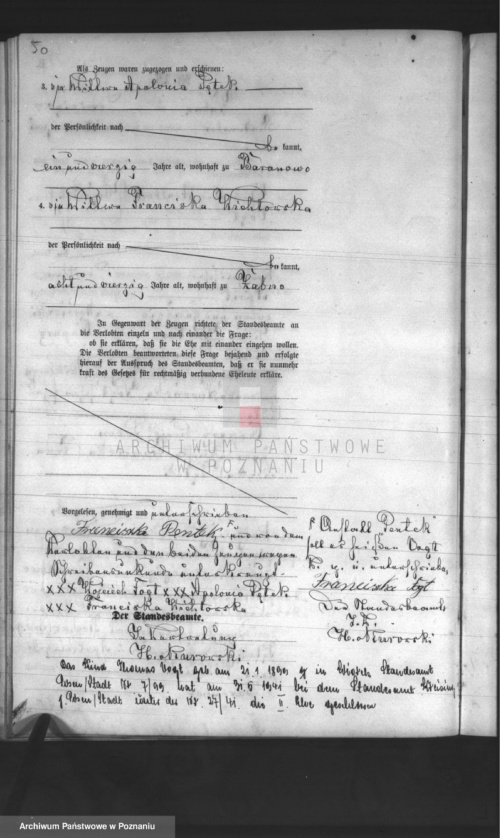 50
Als Zeugen waren zugezogen und erschienen:
Apolonia Pętek
der Persönlichkeit nach
kannt,
einundvierzig Jahre alt, wohnhaft zu Baranowo
Franciska Wichtowska
der Persönlichkeit nach
kannt,
achtundvierzig Jahre alt, wohnhaft zu Żabno
In Gegenwart der Zeugen richtete der Standesbeamte an
die Verlobten einzeln und nach einander die Frage:
ob sie erklären, daß sie die Ehe mit einander eingehen wollen.
Die Verlobten beantworteten diese Frage bejahend und erfolgte
hierauf der Ausspruch des Standesbeamten, daß er sie nunmehr
kraft des Gesetzes für rechtmäßig verbundene Eheleute erkläre.
ARCHIWUM PAŃSTWOWE
W POZNANIU
Vorgelesen, genehmigt und unterschrieben
Franciszka Pentek und von dem
Verlobten und den beiden Zeugen wegen
Schreibensunkunde unterkreuzt.
xxx Wojciech Vogt xxx Apolonia Pętek
xxx Franciska Wichtowska
Der Standesbeamte.
In Vertretung
Pentek
soll es heißen Vogt
V. g. u. unterschrieben
Franciszka
Der Standesbeamte
Das Kind Thomas Vogt geb. am
Posen/Stadt Nr 7/99 hat am bei dem Standesamt
Posen/Stadt unter der Nr 27/41 die II Ehe geschlossen
Archiwum Państwowe w Poznaniu